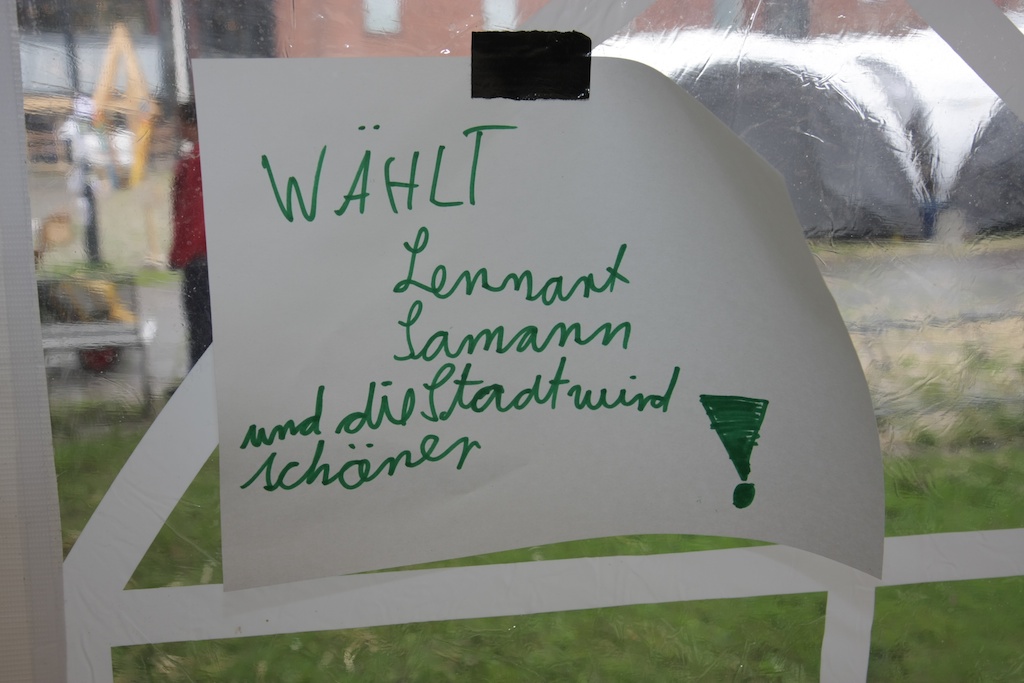 WÄHLT
Lennart
Samann
und die Stadt wird
schöner !